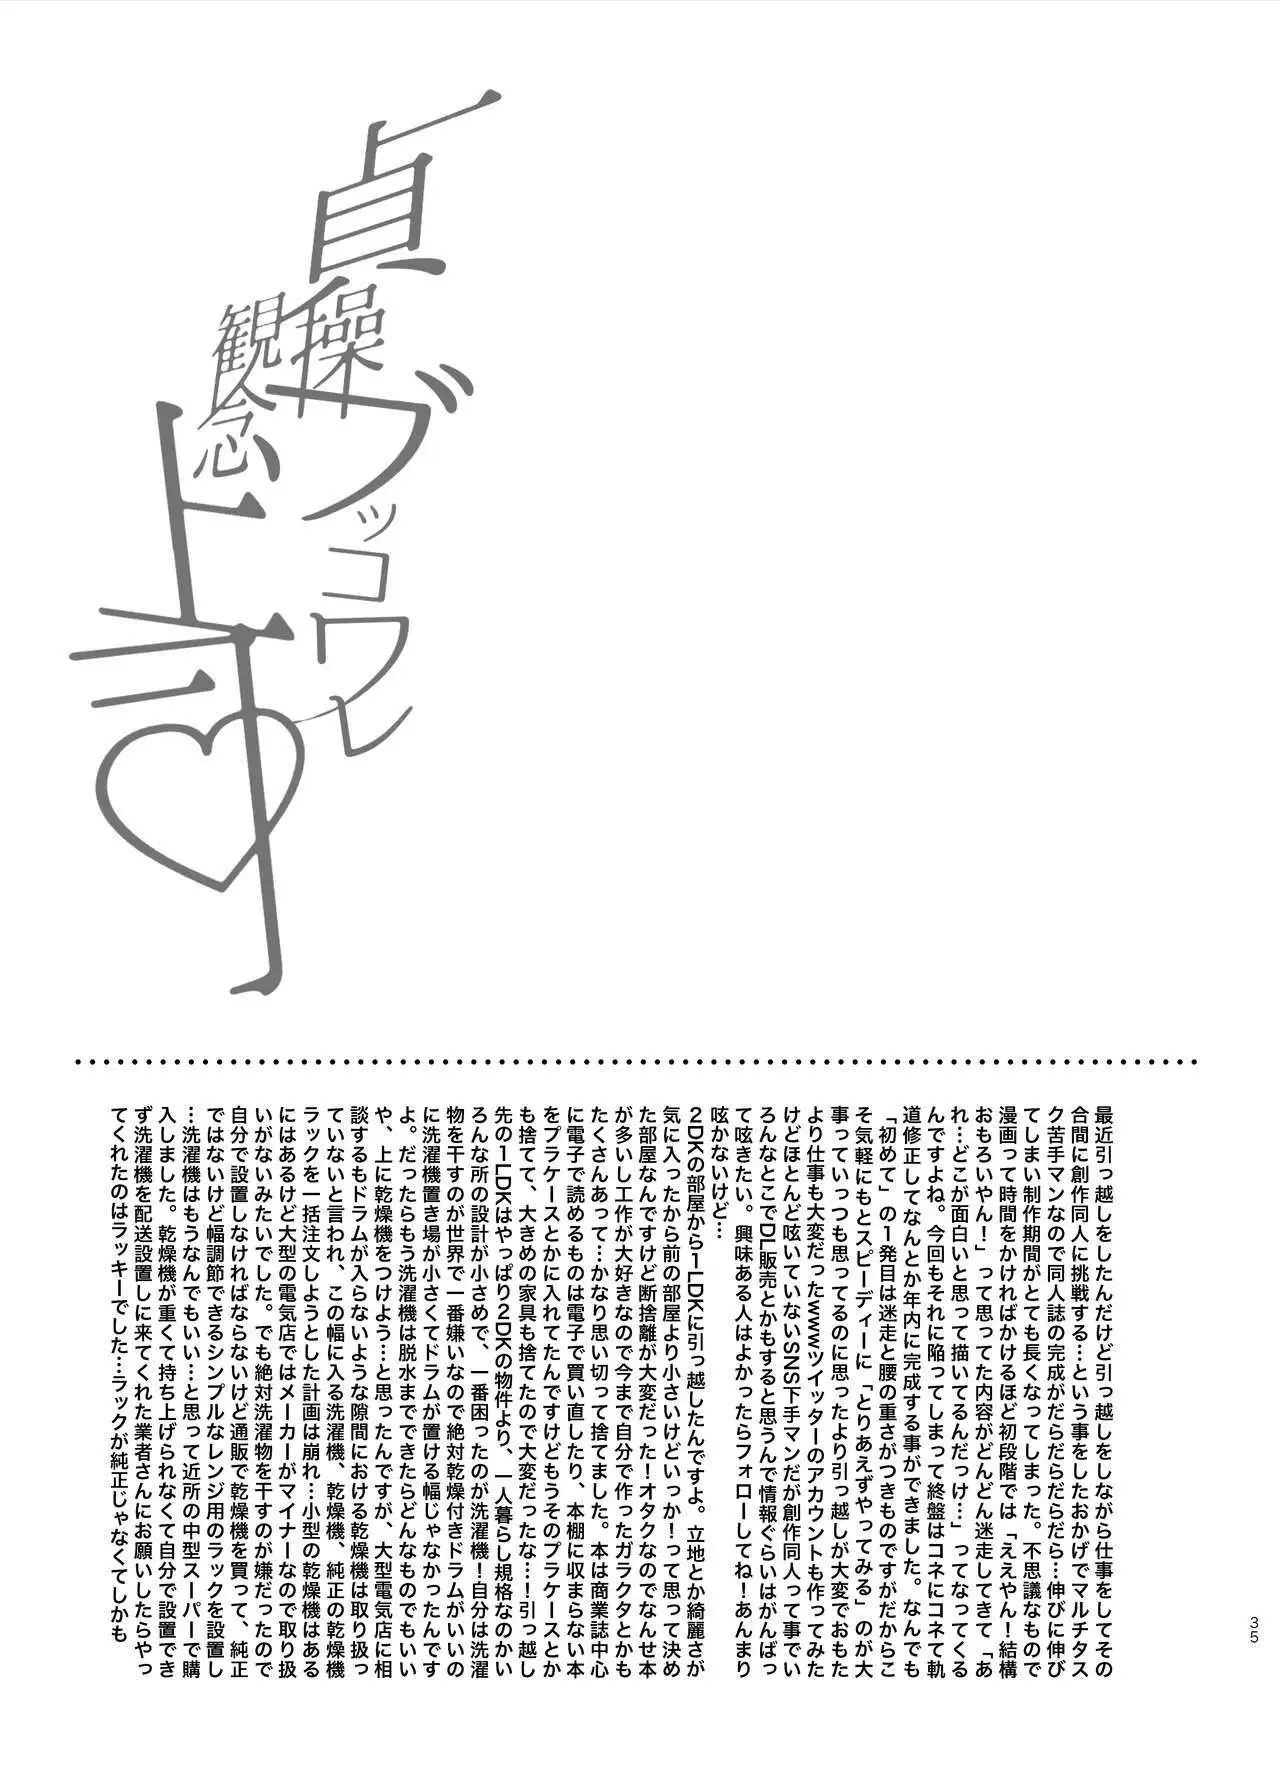 貞操
観念
ブッコワレ
上司♡
最近引っ越しをしたんだけど引っ越しをしながら仕事をしてその
合間に創作同人に挑戦する…という事をしたおかげでマルチタス
ク苦手マンなので同人誌の完成がだらだらだらだら…伸びに伸び
てしまい制作期間がとても長くなってしまった。不思議なもので
漫画って時間をかければかけるほど初段階では「ええやん!結構
おもろいやん!」って思ってた内容がどんどん迷走してきて「あ
れ…どこが面白いと思って描いてるんだっけ…」ってなってくる
んですよね。今回もそれに陥ってしまって終盤はコネにコネて軌
道修正してなんとか年内に完成する事ができました。なんでも
「初めて」の1発目は迷走と腰の重さがつきものですがだからこ
そ気軽にもとスピーディーに「とりあえずやってみる」のが大
事っていっつも思ってるのに思ったより引っ越しが大変でおもた
より仕事も大変だったwwwツイッターのアカウントも作ってみた
けどほとんど呟いていないSNS下手マンだが創作同人って事でい
ろんなとこでDL販売とかもすると思うんで情報ぐらいはがんばっ
て呟きたい。興味ある人はよかったらフォローしてね!あんまり
呟かないけど…
2DKの部屋から1LDKに引っ越したんですよ。立地とか綺麗さが
気に入ったから前の部屋より小さいけどいっか!って思って決め
た部屋なんですけど断捨離が大変だった!オタクなのでなんせ本
が多いし工作が大好きなので今まで自分で作ったガラクタとかも
たくさんあって…かなり思い切って捨てました。本は商業誌中心
に電子で読めるものは電子で買い直したり、本棚に収まらない本
をプラケースとかに入れてたんですけどもうそのプラケースとか
も捨てて、大きめの家具も捨てたので大変だったな…!引っ越し
先の1LDKはやっぱり2DKの物件より、一人暮らし規格なのかい
ろんな所の設計が小さめで、一番困ったのが洗濯機!自分は洗濯
物を干すのが世界で一番嫌いなので絶対乾燥付きドラムがいいの
に洗濯機置き場が小さくてドラムが置ける幅じゃなかったんです
よ。だったらもう洗濯機は脱水までできたらどんなものでもいい
や、上に乾燥機をつけよう…と思ったんですが、大型電気店に相
談するもドラムが入らないような隙間における乾燥機は取り扱っ
ていないと言われ、この幅に入る洗濯機、乾燥機、純正の乾燥機
ラックを一括注文しようとした計画は崩れ…小型の乾燥機はある
にはあるけど大型の電気店ではメーカーがマイナーなので取り扱
いがないみたいでした。でも絶対洗濯物を干すのが嫌だったので
自分で設置しなければならないけど通販で乾燥機を買って、純正
ではないけど幅調節できるシンプルなレンジ用のラックを設置し
…洗濯機はもうなんでもいい…と思って近所の中型スーパーで購
入しました。乾燥機が重くて持ち上げられなくて自分で設置でき
ず洗濯機を配送設置しに来てくれた業者さんにお願いしたらやっ
てくれたのはラッキーでした…ラックが純正じゃなくてしかも
35